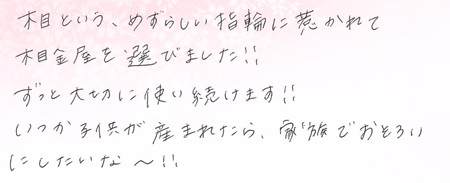 木目という、めずらしい指輪に惹かれて
木目金屋を選びました!!
ずっと大切に使い続けます!!
いつか子供が産まれたら、家族でおそろい
にしたいな〜!!